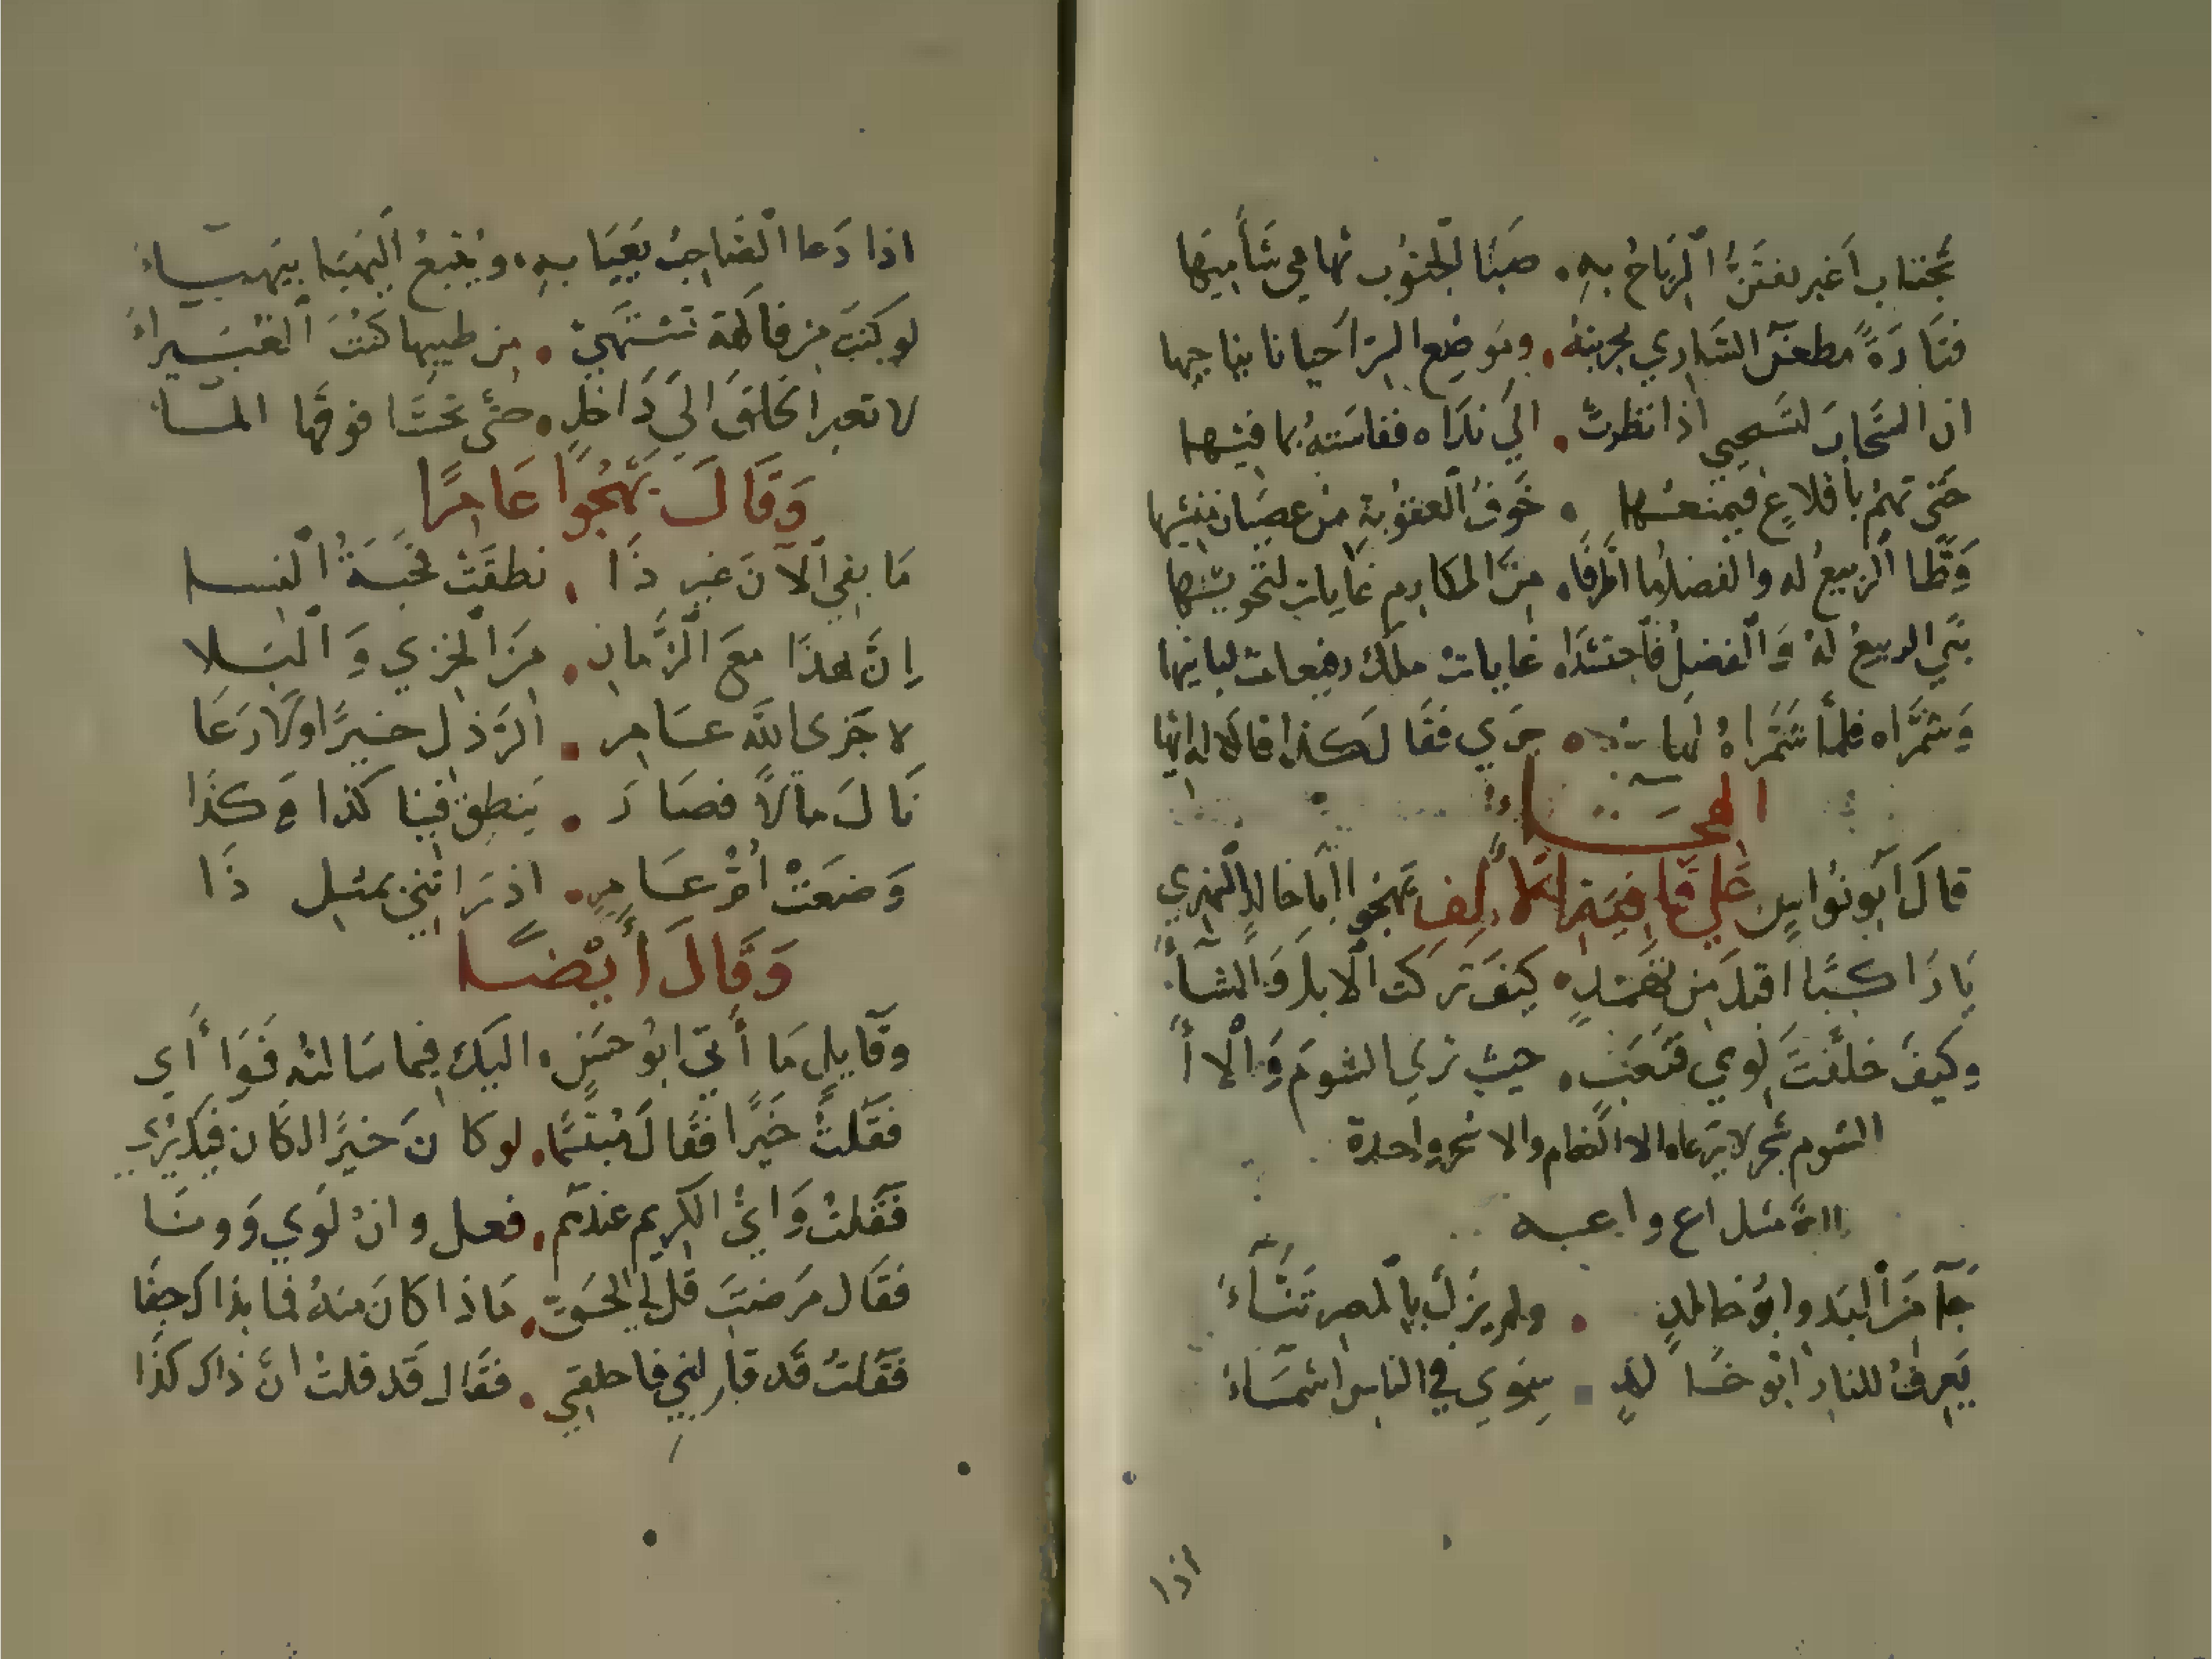 تجتاب اغبر تفتن الرياح به . صبا الجنوب تهامي شأميها
فتارة مطعن الساري بحربته . وتوضع السر احيانا يناجيها
ان السحاب لتستحيي اذا نظرت . الي نداه فقاسته بما فيها
حتى تهم باقلاع فيمنعها . خوف العقوبة من عصيان منشيها
وطا الربيع له والفضل ما اطرفا . من المكارم غايات
بني الربيع له والفضل فاحتشدا . غايات ملك رفيعات لبانيها
وشمراه فلما شمراه لها . جري فقال كذا قالا له ايها
الهجاء
قال ابو نواس علي قافية الالف يهجو ابا خالد النميري
يا راكبا اقبل من ثهمد . كيف تركت الابل والشاء
وكيف خلفت لوي قعنب . حيث تري التنوم والاء
التنوم شجر لا يرعاه الا النعام والا شجره واحدة
ااة مثل اع واعبه
جاء من البدو ابو خالد . ولم يزل بالمصر تنّاء
يعرف للنار ابو خالد . سوي في الناس اسماء
اذا
اذا دعا الصاحب يهيا به . ويتبع اليهيا بيهياء
لو كنت من فاكهة تشتهي . من طيبها كنت الغبيراء
لا تعبر الحلق الي داخل . حتى تحسا فوقها الماء
وقال يهجوا عامرا
ما بقي الآن غير ذا . نطقت قحبة النسا
ان هذا مع الزمان . من الخزي والبلا
لا جزى الله عامر . الرذل خيرا ولا رعا
نال مالا فصار . ينطق فينا كذا وكذا
وضعت ام عامر . اذ رااتني بمثل ذا
وقال أيضا
وقايل ما أتي ابو حسن . اليك فيما سالته فوأي
فقلت خيرا فقال مبتسما . لو كان خيرا لكان فيك يري
فقلت وأي الكريم عندكم . فعل وان لوي وونا
فقال مرضت قل لي الحق . ماذا كان منه فما بذاك خفا
فقلت قد قال لي فاحلقني . فقال قد قلت ان ذاك كذا